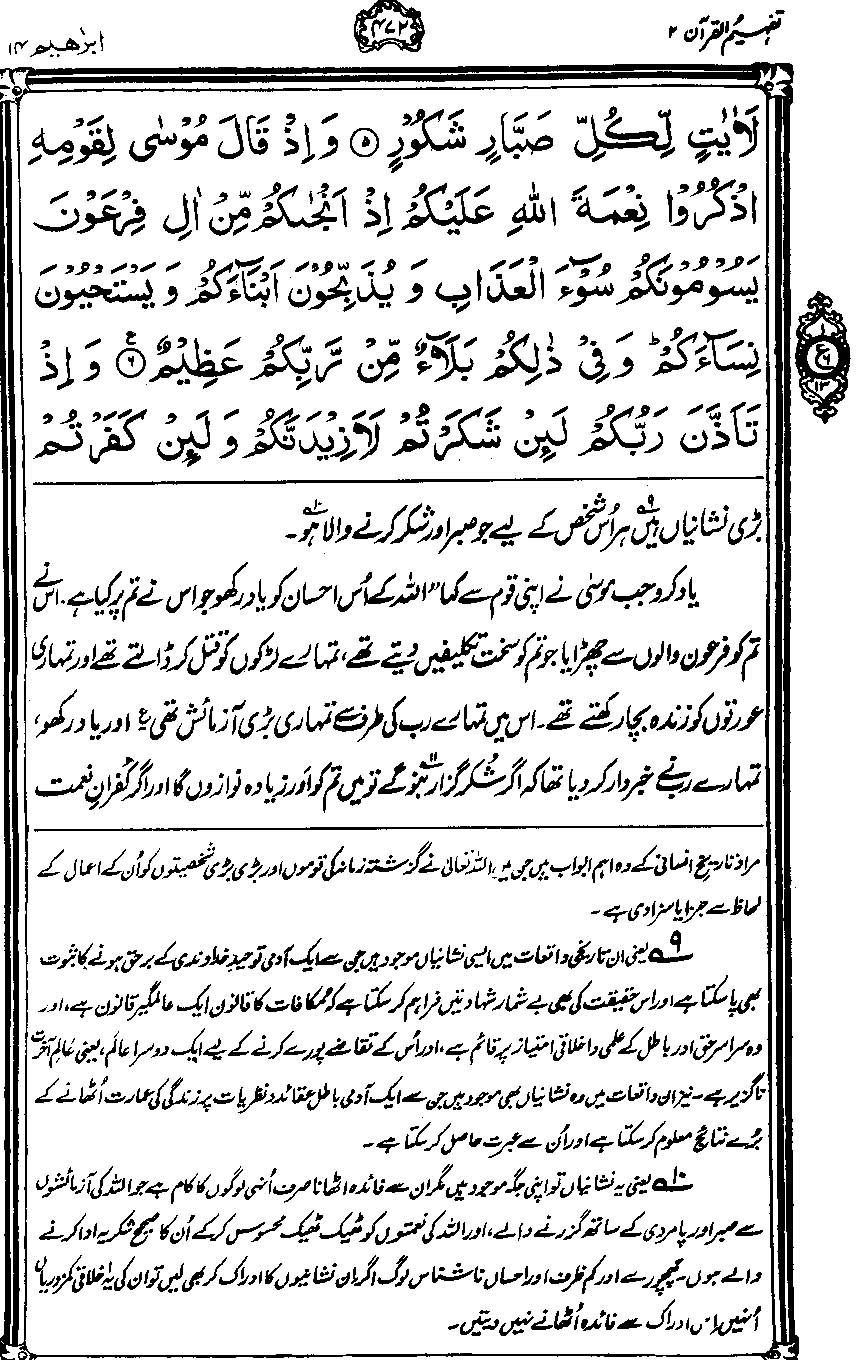 تفہیم القرآن ۲
۴۷۲
ابرٰھیم ۱۴
لَاٰيٰتٍ لِّكُلِّ صَبَّارٍ شَكُوْرٍ ۵ وَاِذْ قَالَ مُوْسٰى لِقَوْمِهِ
اذْكُرُوْا نِعْمَةَ اللهِ عَلَيْكُمْ اِذْ اَنْجٰىكُمْ مِّنْ اٰلِ فِرْعَوْنَ
يَسُوْمُوْنَكُمْ سُوْٓءَ الْعَذَابِ وَ يُذَبِّحُوْنَ اَبْنَآءَكُمْ وَ يَسْتَحْيُوْنَ
نِسَآءَكُمْ ؕ وَ فِيْ ذٰلِكُمْ بَلَآءٌ مِّنْ رَّبِّكُمْ عَظِيْمٌ ۶ ع وَ اِذْ
تَاَذَّنَ رَبُّكُمْ لَىِٕنْ شَكَرْتُمْ لَاَزِيْدَنَّكُمْ وَ لَىِٕنْ كَفَرْتُمْ
بڑی نشانیاں ہیں۹ ہر اُس شخص کے لیے جو صبر اور شکر کرنے والا ہو۱۰۔
یاد کرو جب موسٰی نے اپنی قوم سے کہا "اللہ کے اُس احسان کو یاد رکھو جو اس نے تم پر کیا ہے۔ اس نے
تم کو فرعون والوں سے چھڑایا جو تم کو سخت تکلیفیں دیتے تھے، تمہارے لڑکوں کو قتل کر ڈالتے تھے اور تمہاری
عورتوں کو زندہ بچا رکھتے تھے۔ اس میں تمہارے رب کی طرف سے تمہاری بڑی آزمائش تھی ع اور یاد رکھو،
تمہارے رب نے خبردار کر دیا تھا کہ اگر شکر گزار بنو گے۱۱ تو میں تم کو اَور زیادہ نوازوں گا اور اگر کُفرانِ نعمت
مراد تاریخِ انسانی کے وہ اہم ابواب ہیں جن میں اللہ تعالٰی نے گزشتہ زمانہ کی قوموں اور بڑی بڑی شخصیتوں کو اُن کے اعمال کے
لحاظ سے جزا یا سزا دی ہے۔
۹ یعنی ان تاریخی واقعات میں ایسی نشانیاں موجود ہیں جن سے ایک آدمی توحیدِ خداوندی کے برحق ہونے کا ثبوت
بھی پا سکتا ہے اور اس حقیقت کی بھی بے شمار شہادتیں فراہم کر سکتا ہے کہ مکافات کا قانون ایک عالمگیر قانون ہے، اور
وہ سراسر حق اور باطل کے علمی و اخلاقی امتیاز پر قائم ہے، اور اُس کے تقاضے پورے کرنے کے لیے ایک دوسرا عالَم، یعنی عالمِ آخرت
ناگزیر ہے۔ نیز ان واقعات میں وہ نشانیاں بھی موجود ہیں جن سے ایک آدمی باطل عقائد و نظریات پر زندگی کی عمارت اُٹھانے کے
بُرے نتائج معلوم کر سکتا ہے اور اُن سے عبرت حاصل کر سکتا ہے۔
۱۰ یعنی یہ نشانیاں تو اپنی جگہ موجود ہیں مگر ان سے فائدہ اٹھانا صرف اُنہی لوگوں کا کام ہے جو اللہ کی آزمائشوں
سے صبر اور پامردی کے ساتھ گزرنے والے، اور اللہ کی نعمتوں کو ٹھیک ٹھیک محسوس کر کے اُن کا صحیح شکریہ ادا کرنے
والے ہوں۔ چھچھورے اور کم ظرف اور احسان ناشناس لوگ اگر ان نشانیوں کا ادراک کر بھی لیں تو ان کی یہ اخلاقی کمزوریاں
اُنہیں اس ادراک سے فائدہ اُٹھانے نہیں دیتیں۔